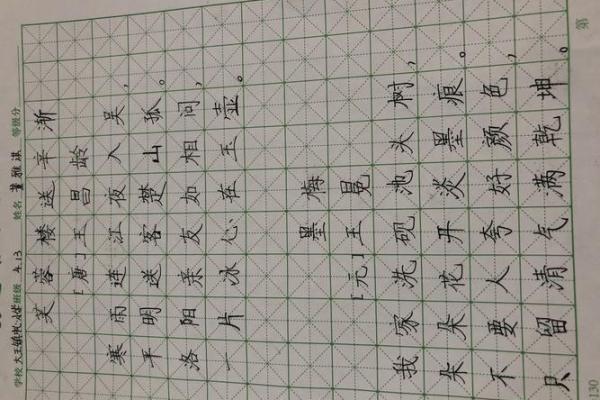 学校 班级 4.13 姓名 等级分 第
芙蓉楼送辛渐
[唐]王昌龄
寒雨连江夜入吴,
平明送客楚山孤。
洛阳亲友如相问,
一片冰心在玉壶。
墨梅
[元]王冕
我家洗砚池头树,
朵朵花开淡墨痕。
不要人夸好颜色,
只留清气满乾坤。
130